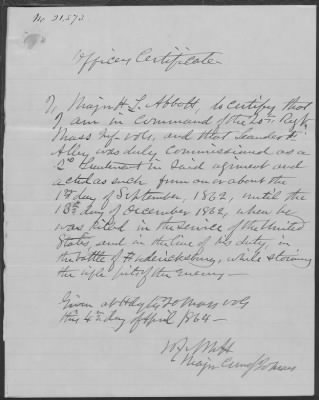 No 21,573
Officers Certificate
I, Major H L Abbott, do certify that
I am in command of the 20th Regt
Mass Inf Vols, and that Leander F
Alley was duly commissioned as a
2nd Lieutenant in said regiment and
acted as such from on or about the
1st day of September, 1862, until the
13th day of December 1862, when he
was killed in the service of the United
States, and in the line of his duty, in
the battle of Fredericksburg, while storming
the rifle pits of the enemy —
Given at Hdqrs 20 Mass Vols
this 4th day of April 1864 —
Major Comdg 20 Mass